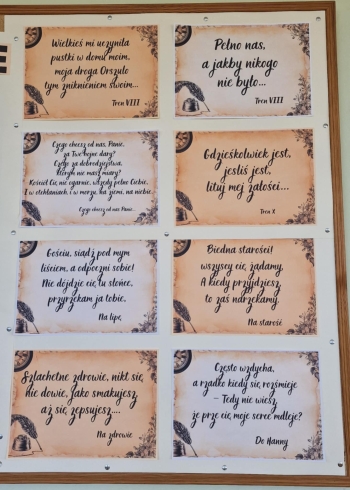 E
Wielkieś mi uczyniła
pustki w domu moim,
moja droga Orszulo
tym zniknieniem swoim...
Tren VIII
Pełno nas,
a jakby nikogo
nie było...
Tren VIII
Czego chcesz od nas, Panie,
za Twe hojne dary?
Czego za dobrodziejstwa,
którym nie masz miary?
Kościół Cię nie ogarnie, wszędy pełno Ciebie,
I w otchłaniach, i w morzu, na ziemi, na niebie.
Czego chcesz od nas Panie...
Gdzieśkolwiek jest,
jesliś jest,
lituj mej żałości...
Tren X
Gościu, siądź pod mym
liściem, a odpoczni sobie!
Nie dójdzie cię tu słońce,
przyrzekam ja tobie.
Na lipę
Biedna starości!
wszyscy cię żądamy,
A kiedy przyjdziesz,
to zaś narzekamy.
Na starość
Szlachetne zdrowie, nikt się
nie dowie, jako smakujesz,
aż się zepsujesz....
Na zdrowie
Często wzdycha,
a rzadko kiedy się rozśmieje
- Tedy nie wiesz,
że prze cię moje serce mdleje?
Do Hanny